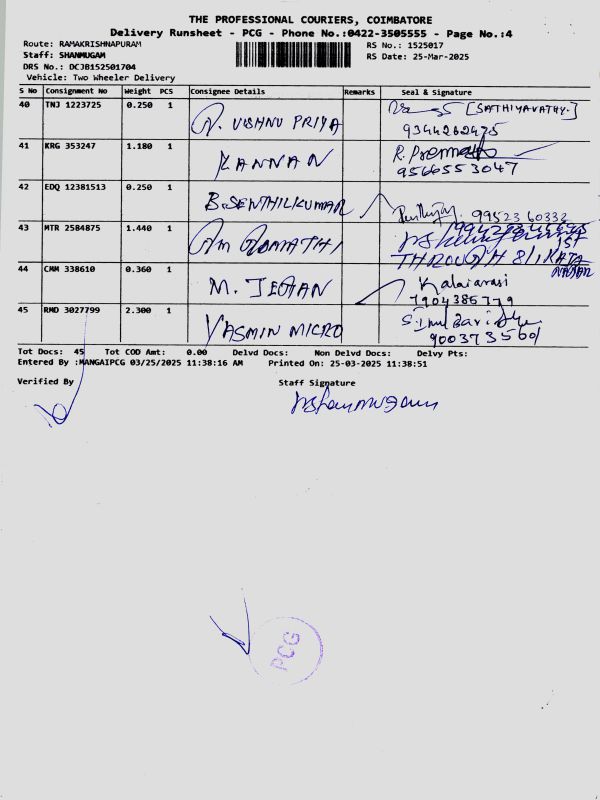 THE PROFESSIONAL COURIERS, COIMBATORE
Delivery Runsheet - PCG - Phone No.:0422-3505555 - Page No.:4
Route: RAMAKRISHNAPURAM RS No.: 1525017
Staff: SHANMUGAM RS Date: 25-Mar-2025
DRS No.: DCJB152501704
Vehicle: Two Wheeler Delivery
S No Consignment No Weight PCS Consignee Details Remarks Seal & Signature
40 TNJ 1223725 0.250 1 VISHNU PRIYA [SATHIYAVATHY.]
9344262475
41 KRG 353247 1.180 1 KANNAN R.
9566553047
42 EDQ 12381513 0.250 1 B.SENTHILKUMAR 99523 60333
43 MTR 2584875 1.440 1 GOMATHI
THROUGH
44 CMM 338610 0.360 1 M. JEGAN Kalaiarasi
7904385779
45 RMD 3027799 2.300 1 YASMIN MICRO
9003735601
Tot Docs: 45 Tot COD Amt: 0.00 Delvd Docs: Non Delvd Docs: Delvy Pts:
Entered By :MANGAIPCG 03/25/2025 11:38:16 AM Printed On: 25-03-2025 11:38:51
Verified By Staff Signature
PCG